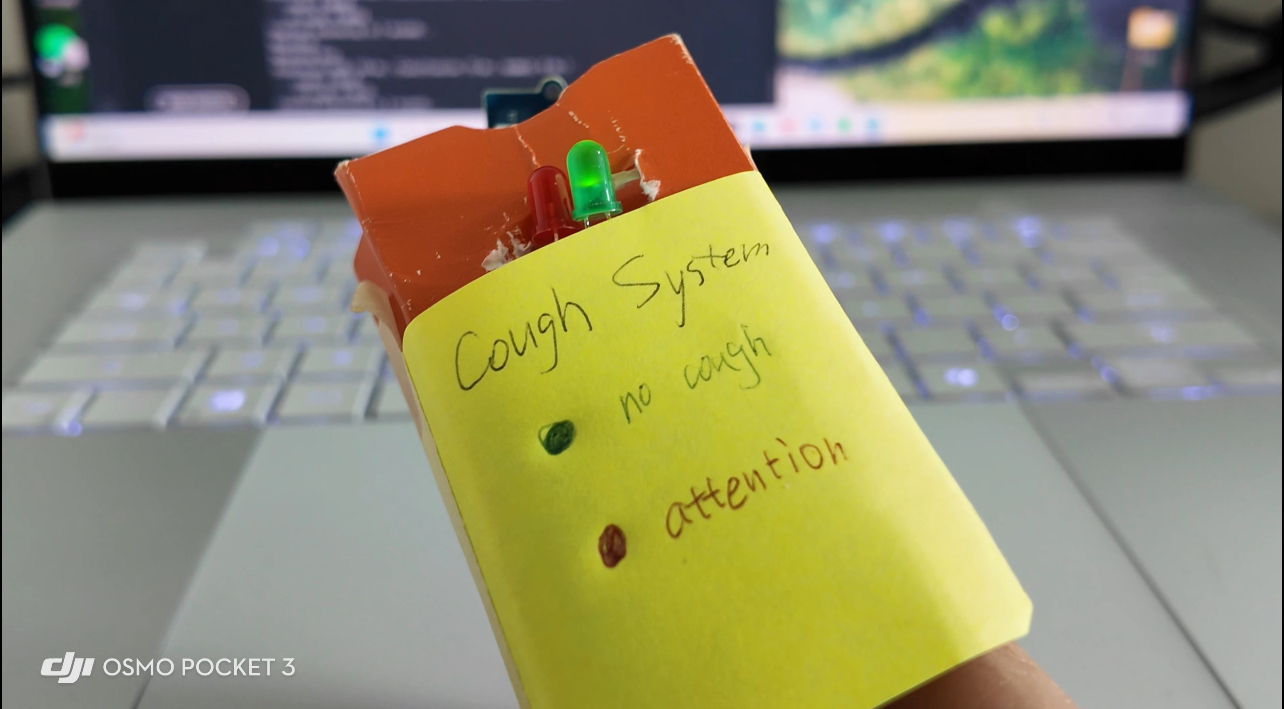 Cough System
no cough
attention
dji OSMO POCKET 3